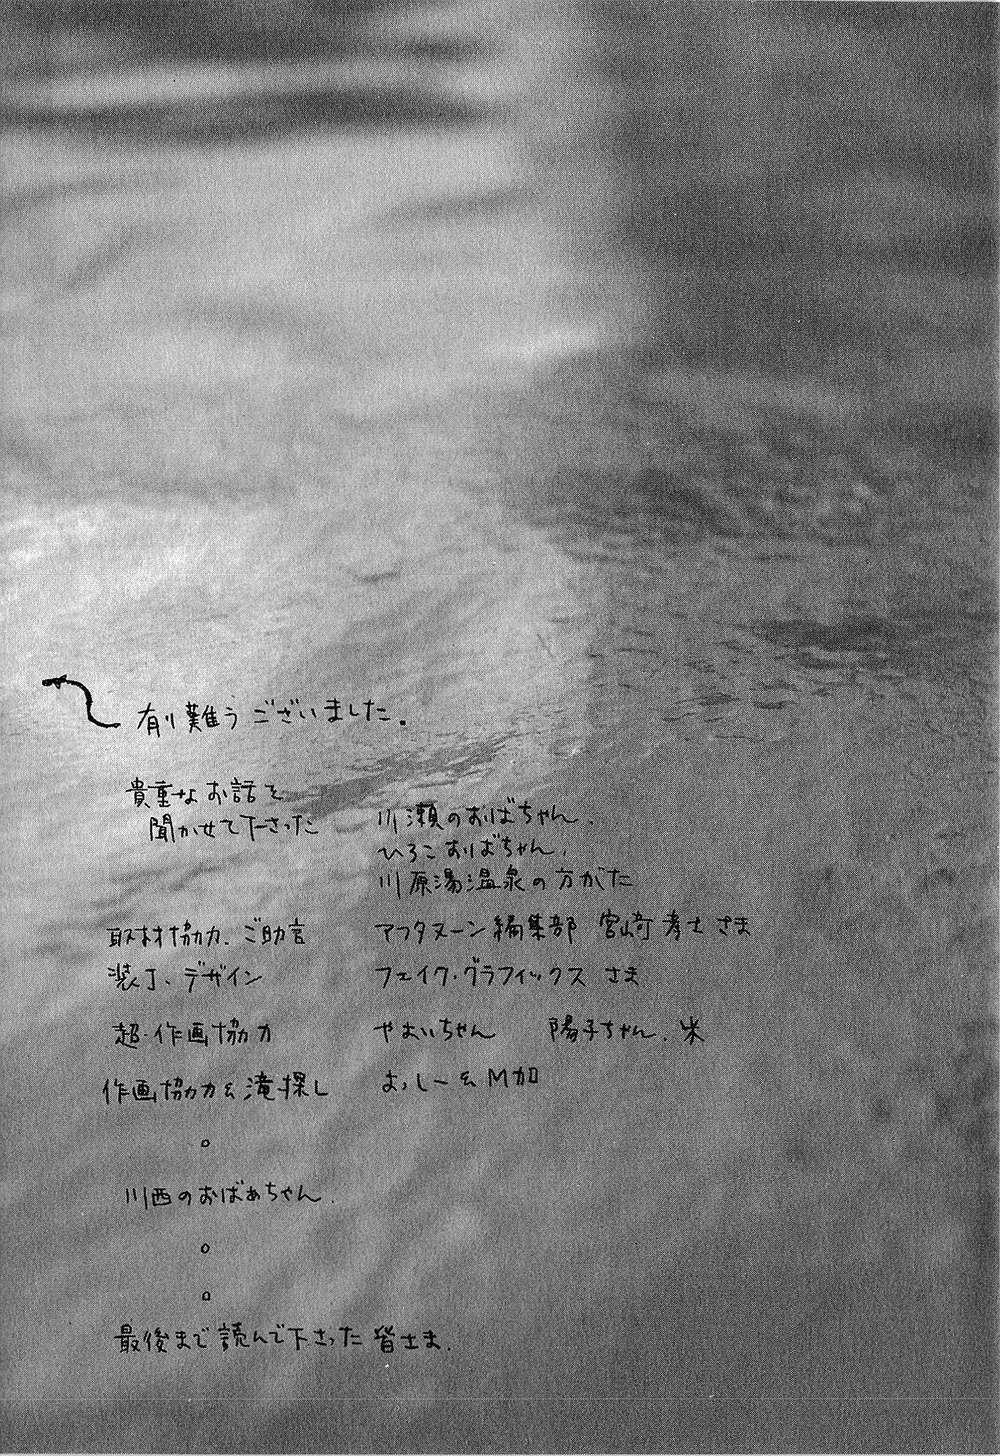 有り難うございました。
貴重なお話を
聞かせて下さった
川瀬のおばちゃん、
ひろこおばちゃん、
川原湯温泉の方がた
取材協力、ご助言
アフタヌーン編集部 宮崎孝士さま
装丁、デザイン
フェイク・グラフィックス さま
超・作画協力
やよいちゃん 陽子ちゃん、米
作画協力&滝探し
おっしー& M加
川西のおばあちゃん、
最後まで読んで下さった 皆さま、